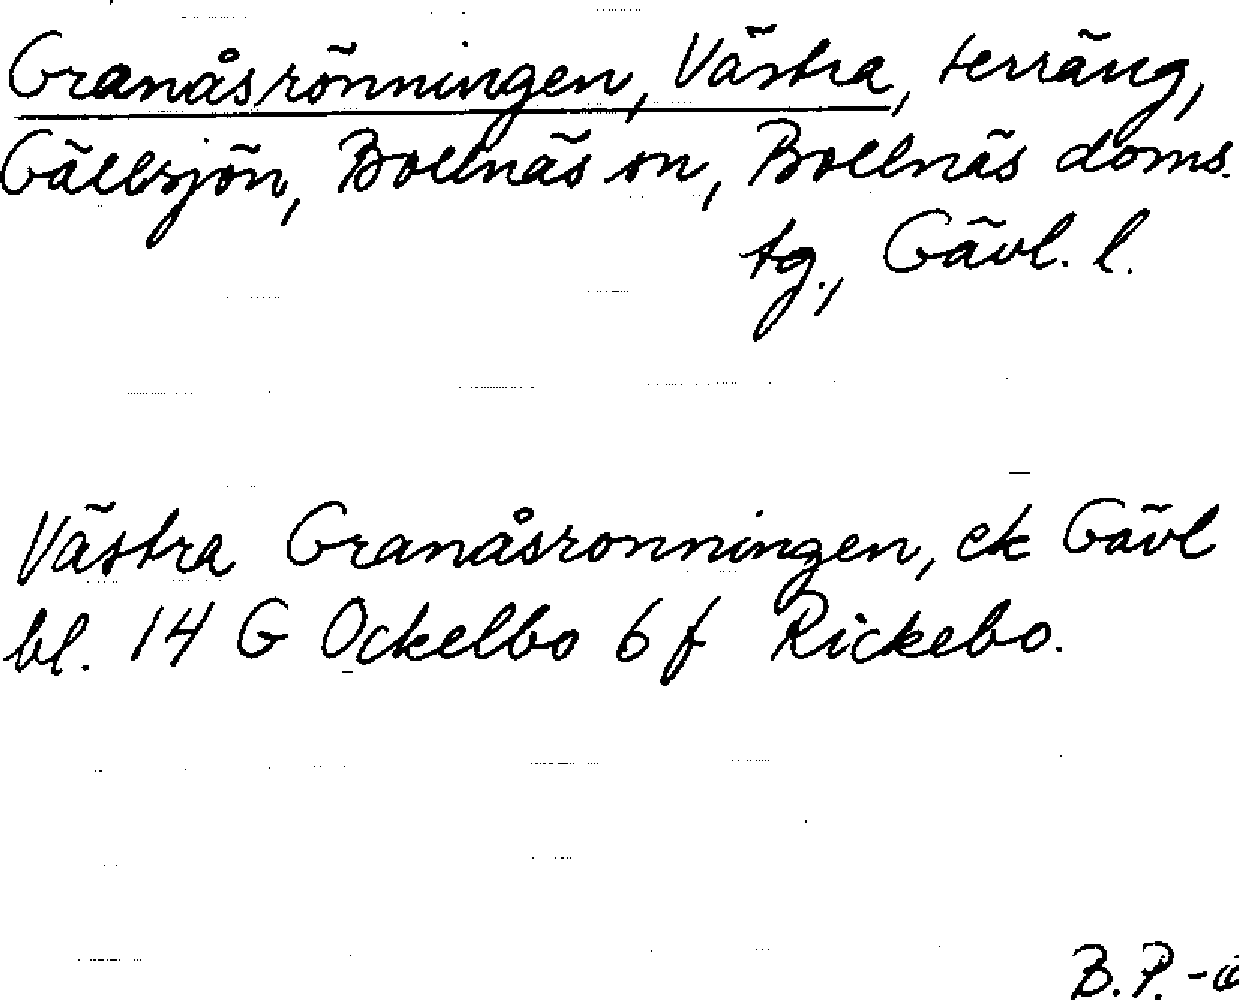 Granåsrönningen, Västra, terräng,
Gällsjön, Bollnäs sn, Bollnäs doms.
tg., Gävl. l.
Västra Granåsronningen, ek Gävl
bl. 14 G Ockelbo 6 f Rickebo.
B.P.-